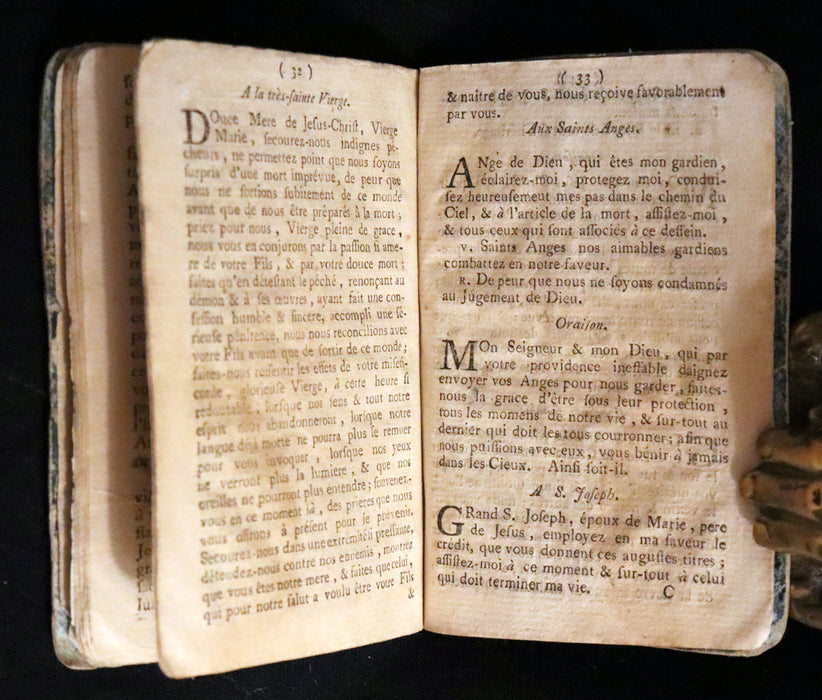 ( 32 )
A la très-sainte Vierge.
Douce Mere de Jesus-Christ, Vierge
Marie, secourez-nous indignes pé-
cheurs, ne permettez point que nous soyons
surpris d'une mort imprévue, de peur que
nous ne sortions subitement de ce monde
avant que de nous être préparés à la mort;
priez pour nous, Vierge pleine de grace,
nous vous en conjurons par la passion si ame-
re de votre Fils, & par votre douce mort;
faites qu'en détestant le péché, renonçant au
démon & à ses œuvres, ayant fait une con-
fession humble & sincere, accompli une sé-
rieuse pénitence, nous nous reconcilions avec
votre Fils avant que de sortir de ce monde;
faites-nous ressentir les effets de votre miséri-
corde, glorieuse Vierge, à cette heure si
redoutable, lorsque nos sens & tout notre
esprit nous abandonneront, lorsque notre
langue déja morte ne pourra plus se remuer
pour vous invoquer, lorsque nos yeux
ne verront plus la lumiere, & que nos
oreilles ne pourront plus entendre; souvenez-
vous en ce moment là, des prieres que nous
vous offrons à présent pour le prévenir.
Secourez-nous dans une extrémité si pressante,
défendez-nous contre nos ennemis, montrez
que vous êtes notre mere, & faites que celui,
qui pour notre salut a voulu être votre Fils
&
( 33 )
& naître de vous, nous reçoive favorablement
par vous.
Aux Saints Anges.
ANge de Dieu, qui êtes mon gardien,
éclairez-moi, protegez moi, condui-
sez heureusement mes pas dans le chemin du
Ciel, & à l'article de la mort, assistez-moi,
& tous ceux qui sont associés à ce dessein.
V. Saints Anges nos aimables gardiens
combattez en notre faveur.
R. De peur que nous ne soyons condamnés
au Jugement de Dieu.
Oraison.
MOn Seigneur & mon Dieu, qui par
votre providence ineffable daignez
envoyer vos Anges pour nous garder, faites-
nous la grace d'être sous leur protection,
tous les momens de notre vie, & sur-tout au
dernier qui doit les tous courronner; afin que
nous puissions avec eux, vous bénir à jamais
dans les Cieux. Ainsi soit-il.
A S. Joseph.
GRand S. Joseph, époux de Marie, pere
de Jesus, employez en ma faveur le
crédit, que vous donnent ces augustes titres;
assistez-moi à ce moment & sur-tout à celui
qui doit terminer ma vie.
C